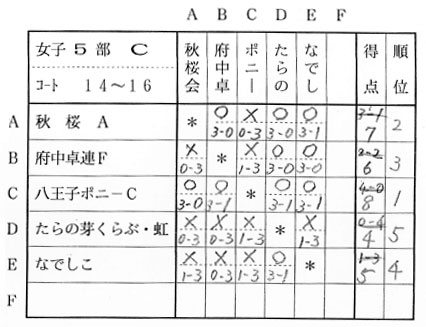 A B C D E F
女子5部 C 秋桜会 府中卓 ポニー たらの なでし 得点 順位
コート 14～16
A 秋桜 A * ○ × ○ ○ 3-1 2
3-0 0-3 3-0 3-1 7
B 府中卓連F × * × ○ ○ 2-2 3
0-3 1-3 3-0 3-0 6
C 八王子ポニーC ○ ○ * ○ ○ 4-0 1
3-0 3-1 3-1 3-1 8
D たらの芽くらぶ・虹 × × × * × 0-4 5
0-3 0-3 1-3 1-3 4
E なでしこ × × × ○ * 1-3 4
1-3 0-3 1-3 3-1 5
F